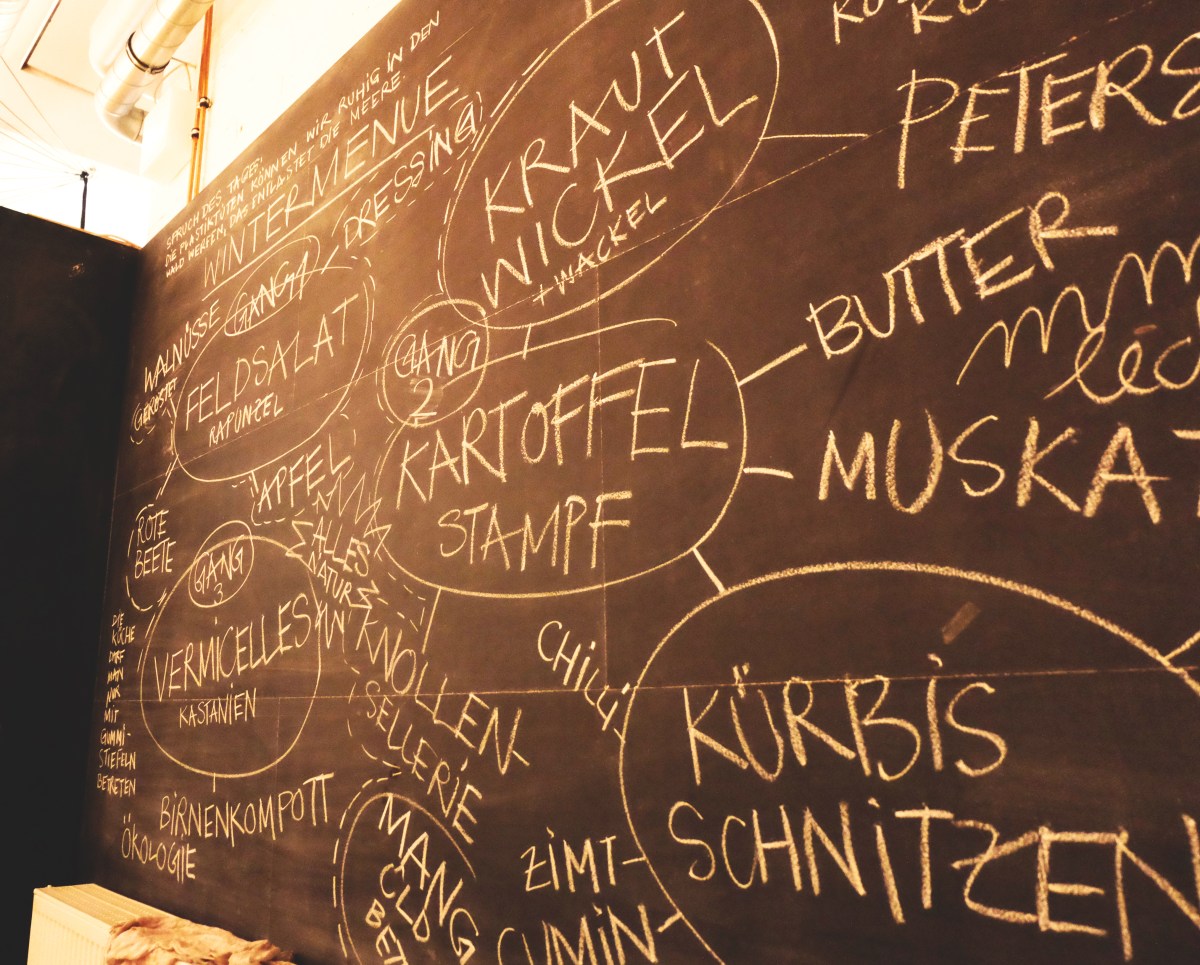 SPRUCH DES TAGES:
DIE PLASTIKTÜTEN KÖNNEN WIR RUHIG IN DEN
WALD WERFEN, DAS ENTLASTET DIE MEERE.
WINTERMENUE
DRESSING
WALNÜSSE
GERÖSTET
GANG 1
FELDSALAT
RAPUNZEL
APFEL
ROTE
BEETE
KRAUT
WICKEL
+ WACKEL
PETERS
GANG
2
KARTOFFEL
STAMPF
BUTTER
MUSKAT
ALLES
NATUR
GANG
3
VERMICELLES
KASTANIEN
BIRNENKOMPOTT
DIE
KÜCHE
DARF
MAN
NUR
MIT
GUMMI-
STIEFELN
BETRETEN
ÖKOLOGIE
KNOLLEN
SELLERIE
MANG
OLD
BET
CHILLI
KÜRBIS
SCHNITZEN
ZIMT
CUMIN